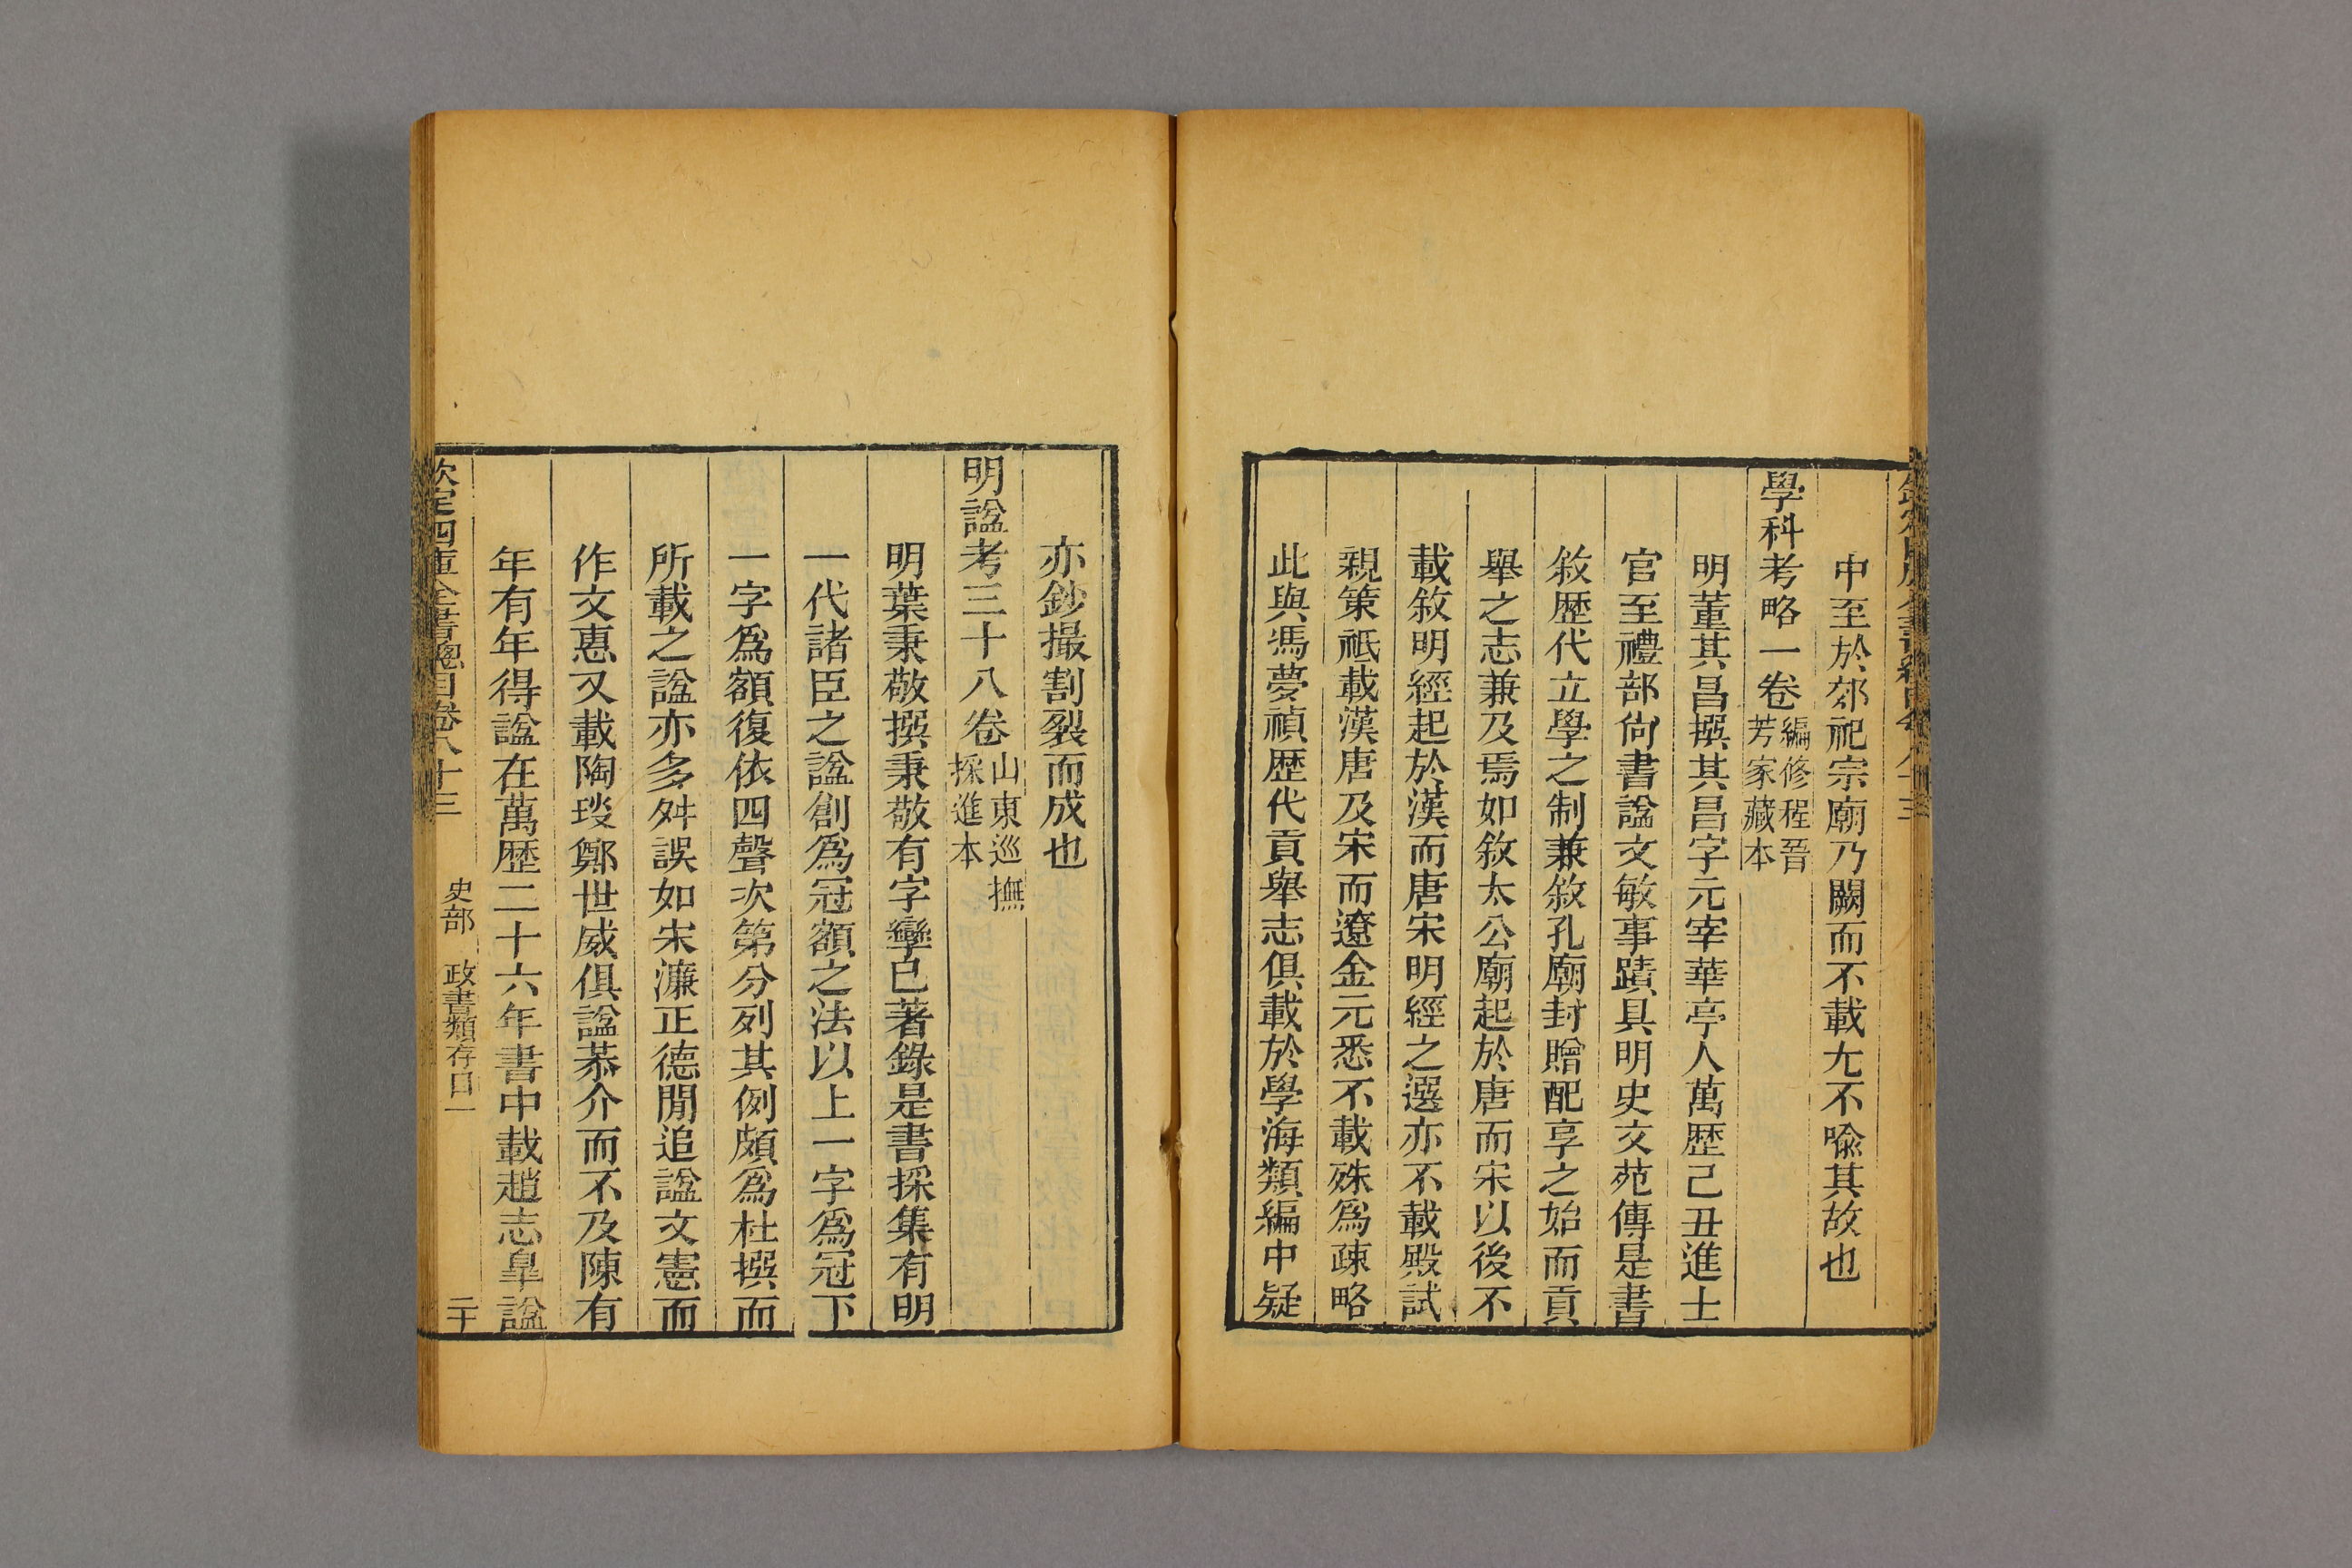 中至於郊祀宗廟乃闕而不載尢不喩其故也
學科考略一卷編修程晉芳家藏本
明董其昌撰其昌字元宰華亭人萬歷己丑進士
官至禮部尙書諡文敏事蹟具明史文苑傳是書
敘歷代立學之制兼敘孔廟封贈配享之始而貢
舉之志兼及焉如敘太公廟起於唐而宋以後不
載敘明經起於漢而唐宋明經之選亦不載殿試
親策祗載漢唐及宋而遼金元悉不載殊爲疎略
此與馮夢禎歷代貢舉志俱載於學海類編中疑
亦鈔撮割裂而成也
明諡考三十八卷山東巡撫採進本
明葉秉敬撰秉敬有字孿已著錄是書採集有明
一代諸臣之諡創爲冠額之法以上一字爲冠下
一字爲額復依四聲次第分列其例頗爲杜撰而
所載之諡亦多舛誤如宋濂正德閒追諡文憲而
作文惠又載陶琰鄭世威俱諡恭介而不及陳有
年有年得諡在萬歷二十六年書中載趙志臯諡
欽定四庫全書總目卷八十三 史部 政書類存目一 二十